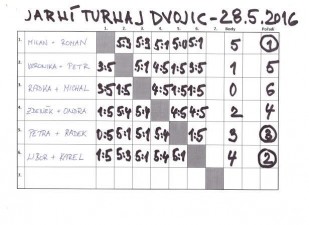 JARNÍ TURNAJ DVOJIC - 28.5.2016
1. 2. 3. 4. 5. 6. 7. Body Pořadí
1. MILAN + ROMAN 5:3 5:3 5:1 5:0 5:1 5 1
2. VERONIKA + PETR 3:5 5:1 4:5 4:5 3:5 1 5
3. RADKA + MICHAL 3:5 1:5 4:5 1:5 1:5 0 6
4. ZDENĚK + ONDRA 1:5 5:4 5:4 4:5 4:5 2 4
5. PETRA + RADEK 0:5 5:4 5:1 5:4 1:5 3 3
6. LIBOR + KAREL 1:5 5:3 5:1 5:4 5:1 4 2
7.